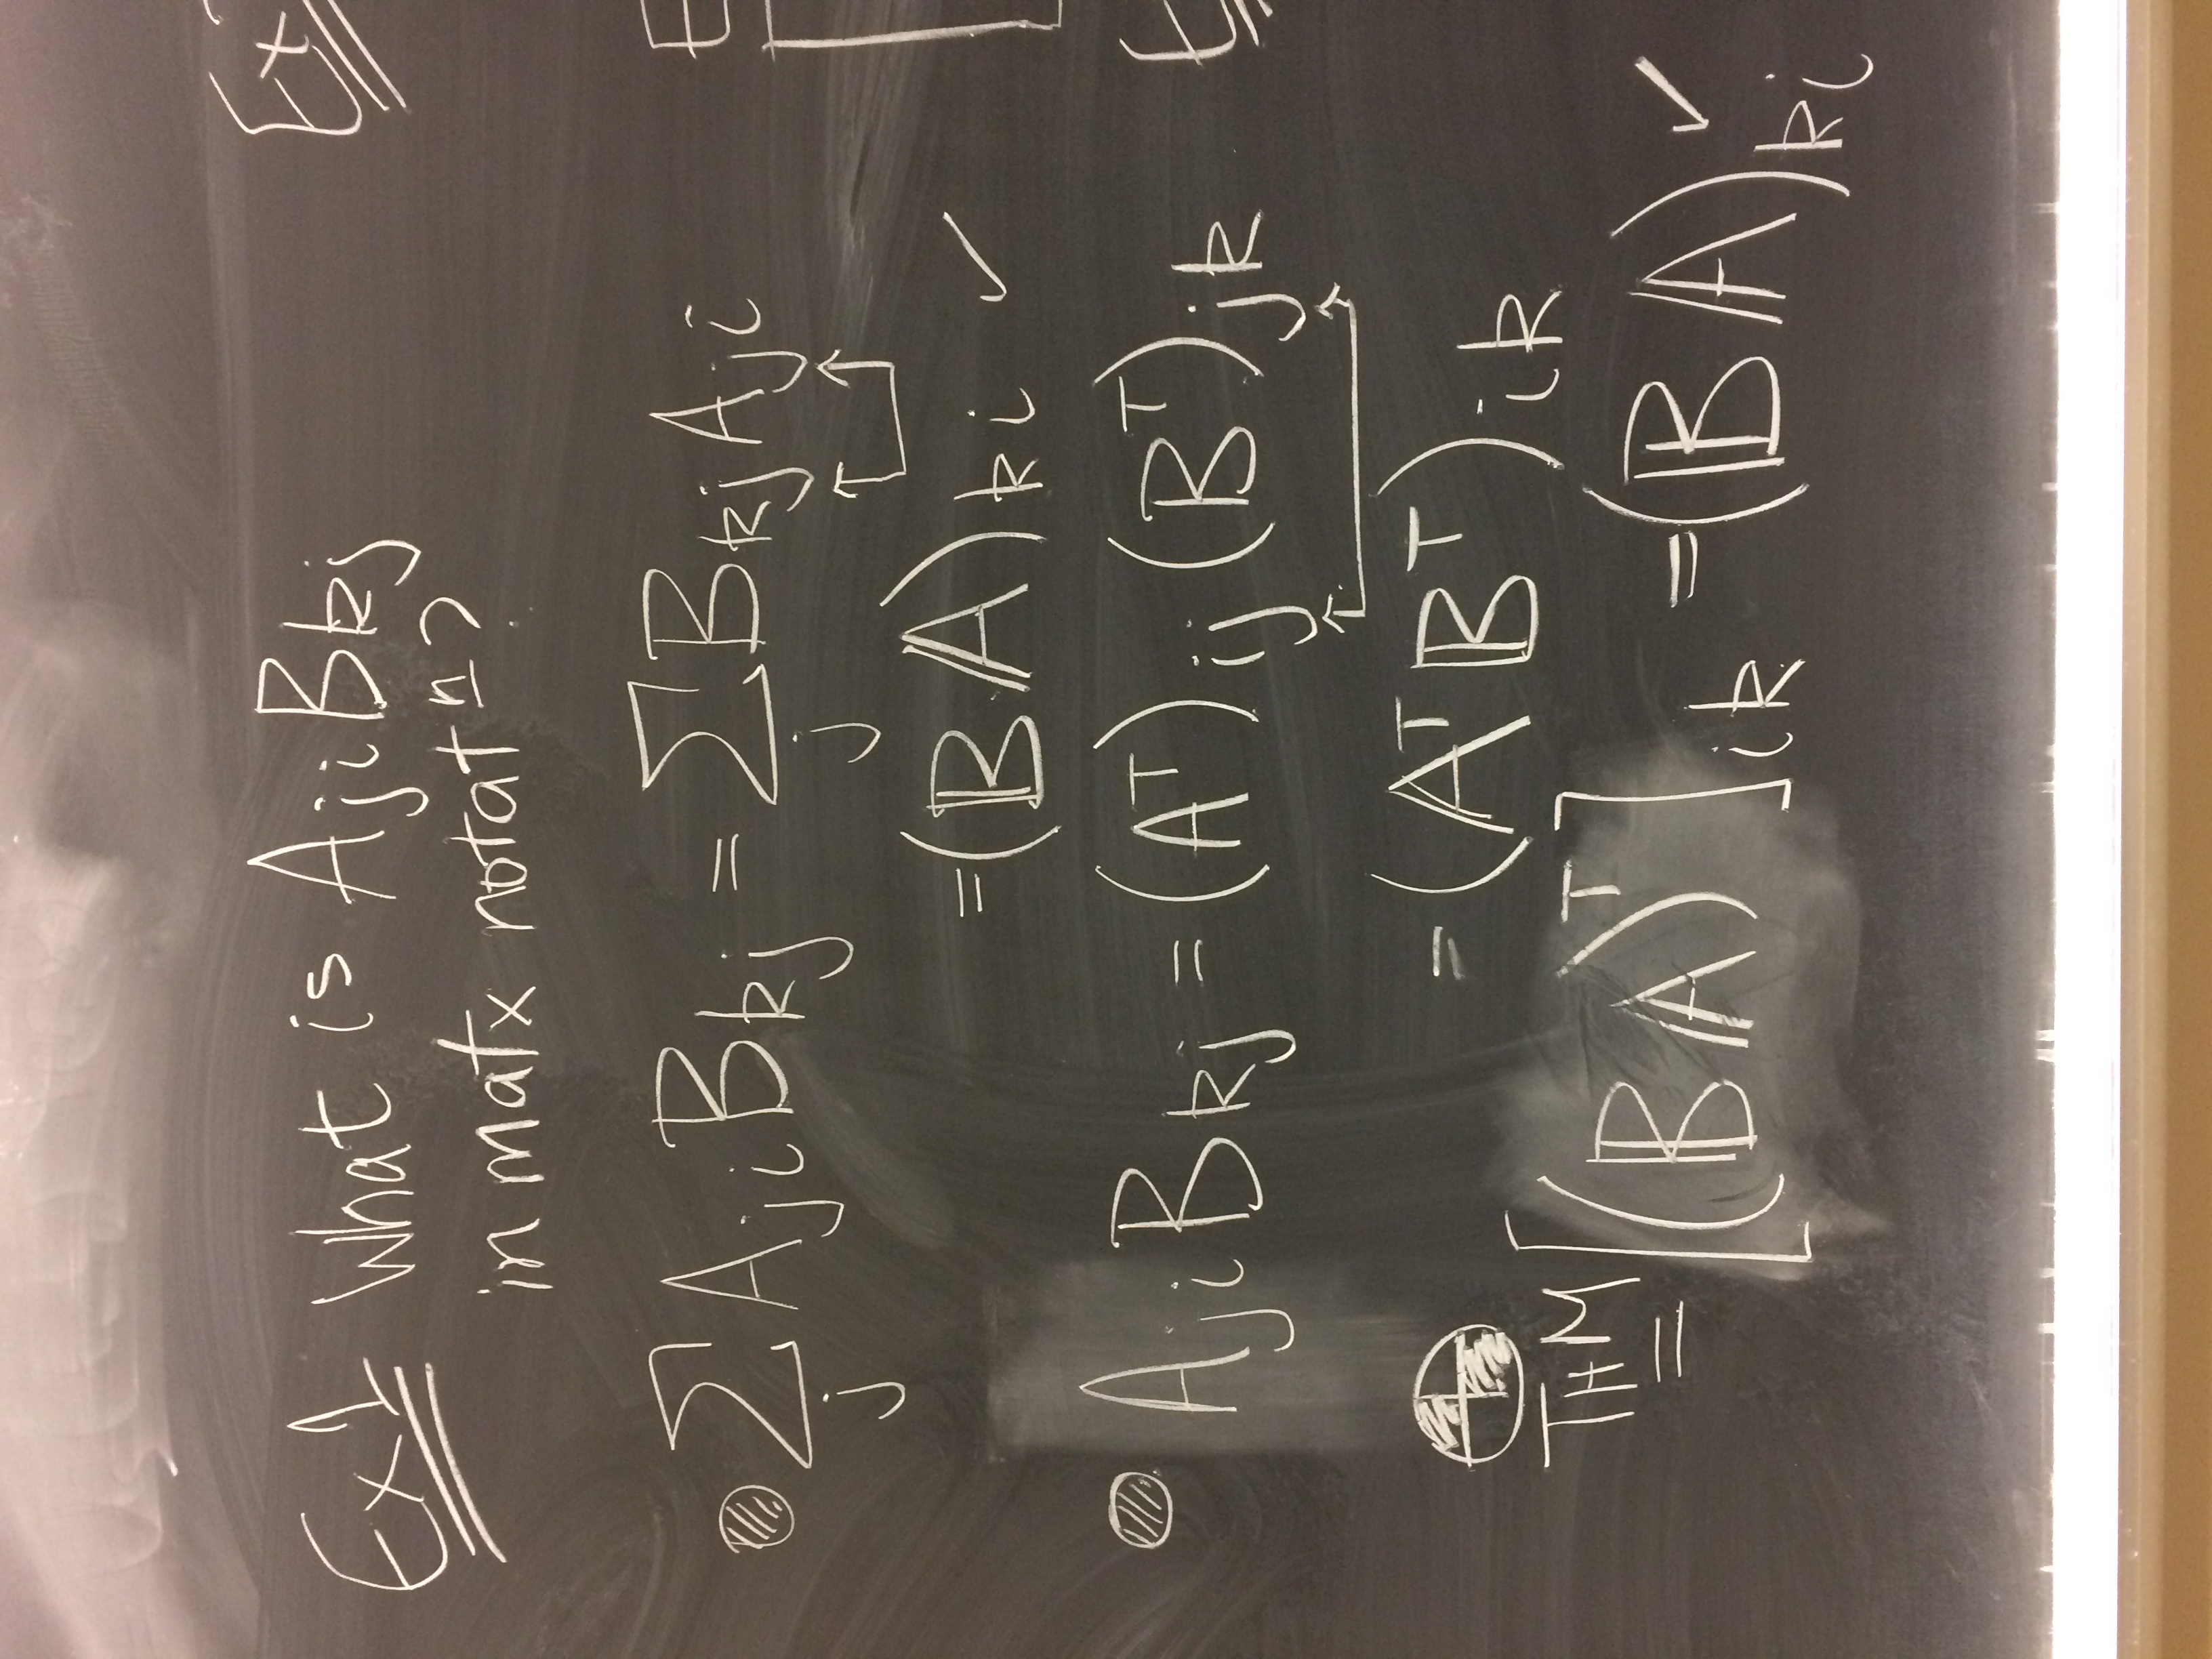 Ex1 What is AjiBkj
in matx notatn?
Σj AjiBkj = Σj BkjAji
= (BA)ki ✓
AjiBkj = (Aᵀ)ij (Bᵀ)jk
= (AᵀBᵀ)ik
THM = [(BA)ᵀ]ik = (BA)ki ✓
Ex